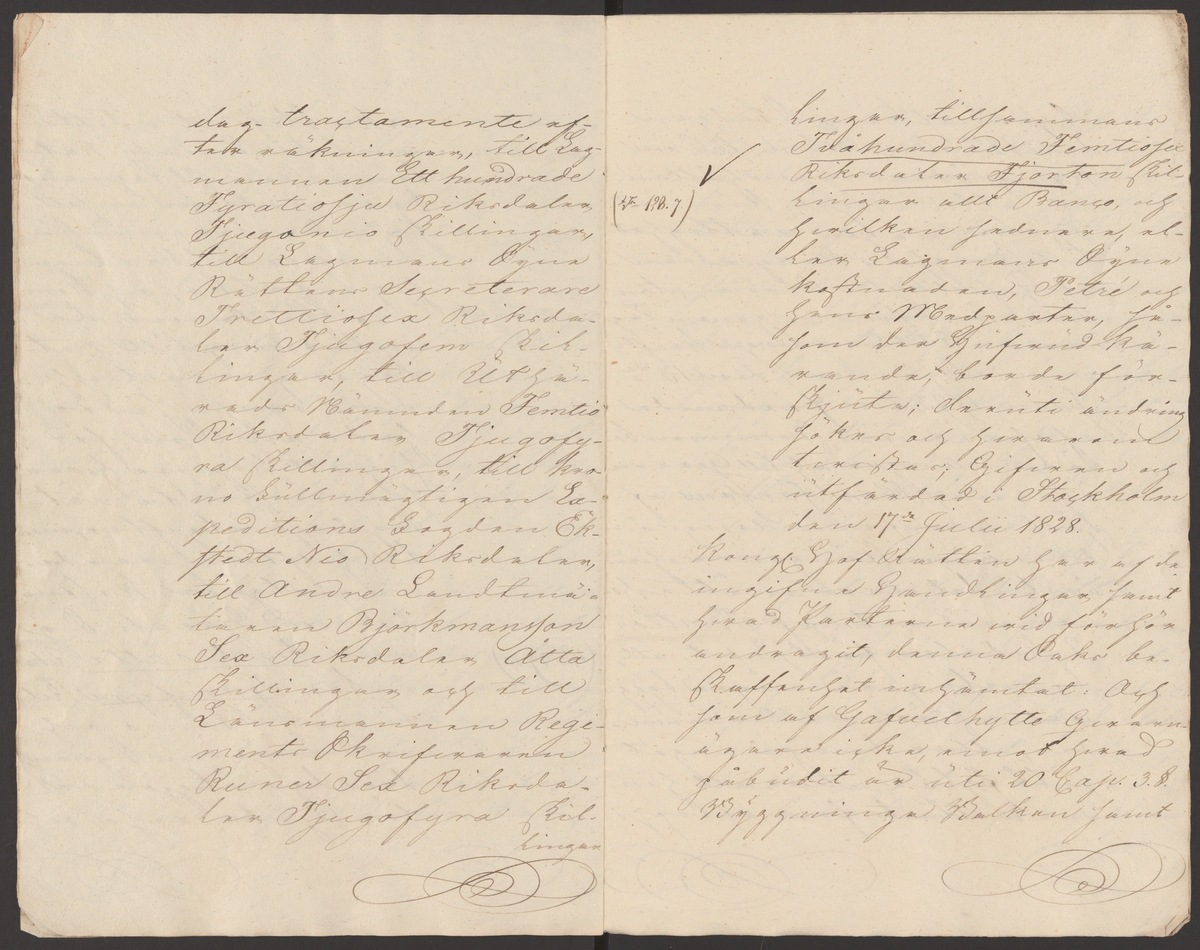 dag- tractamente ef-
ter räkningar, till Lag-
mannen Ett hundrade
Fyratiosju Riksdaler
Tjugonio skillingar,
till Lagmans Syne
Rättens Secreterare
Trettiosex Riksda-
ler Tjugofem skil-
lingar, till Uthä-
rads Nämnden Femtio
Riksdaler Tjugofy-
ra skillingar, till kro-
no fullmägtigen Ex-
peditions Fogden Ek-
stedt Nio Riksdaler,
till Andre Landtmä-
taren Björkmansson
Sex Riksdaler Åtta
skillingar och till
Länsmannen Regi-
ments Skrifvaren
Runer Sex Riksda-
ler Tjugofyra skil-
lingar
lingar, tillsammans
Tvåhundrade Femtiosex
Riksdaler Fjorton skil-
lingar allt Banco, och
hvilken sednare, el-
ler Lagmans Syne
kostnaden, Petré och
hans Medparter, så-
som der hufvud kä-
rande, borde för-
skjuta; deruti ändring
sökes och hvarom
tvistas; Gifven och
utfärdad i Stockholm
den 17de Julii 1828.
Kongl. Hof Rätten har af de
ingifne Handlingar samt
hvad Parterne vid förhör
andragit, denna Saks be-
skaffenhet inhämtat: Och
som af Gafvelhytte Qvarn-
ägare icke, emot hvad
påbudit är uti 20 Cap. 3. §.
Byggninga Balken samt